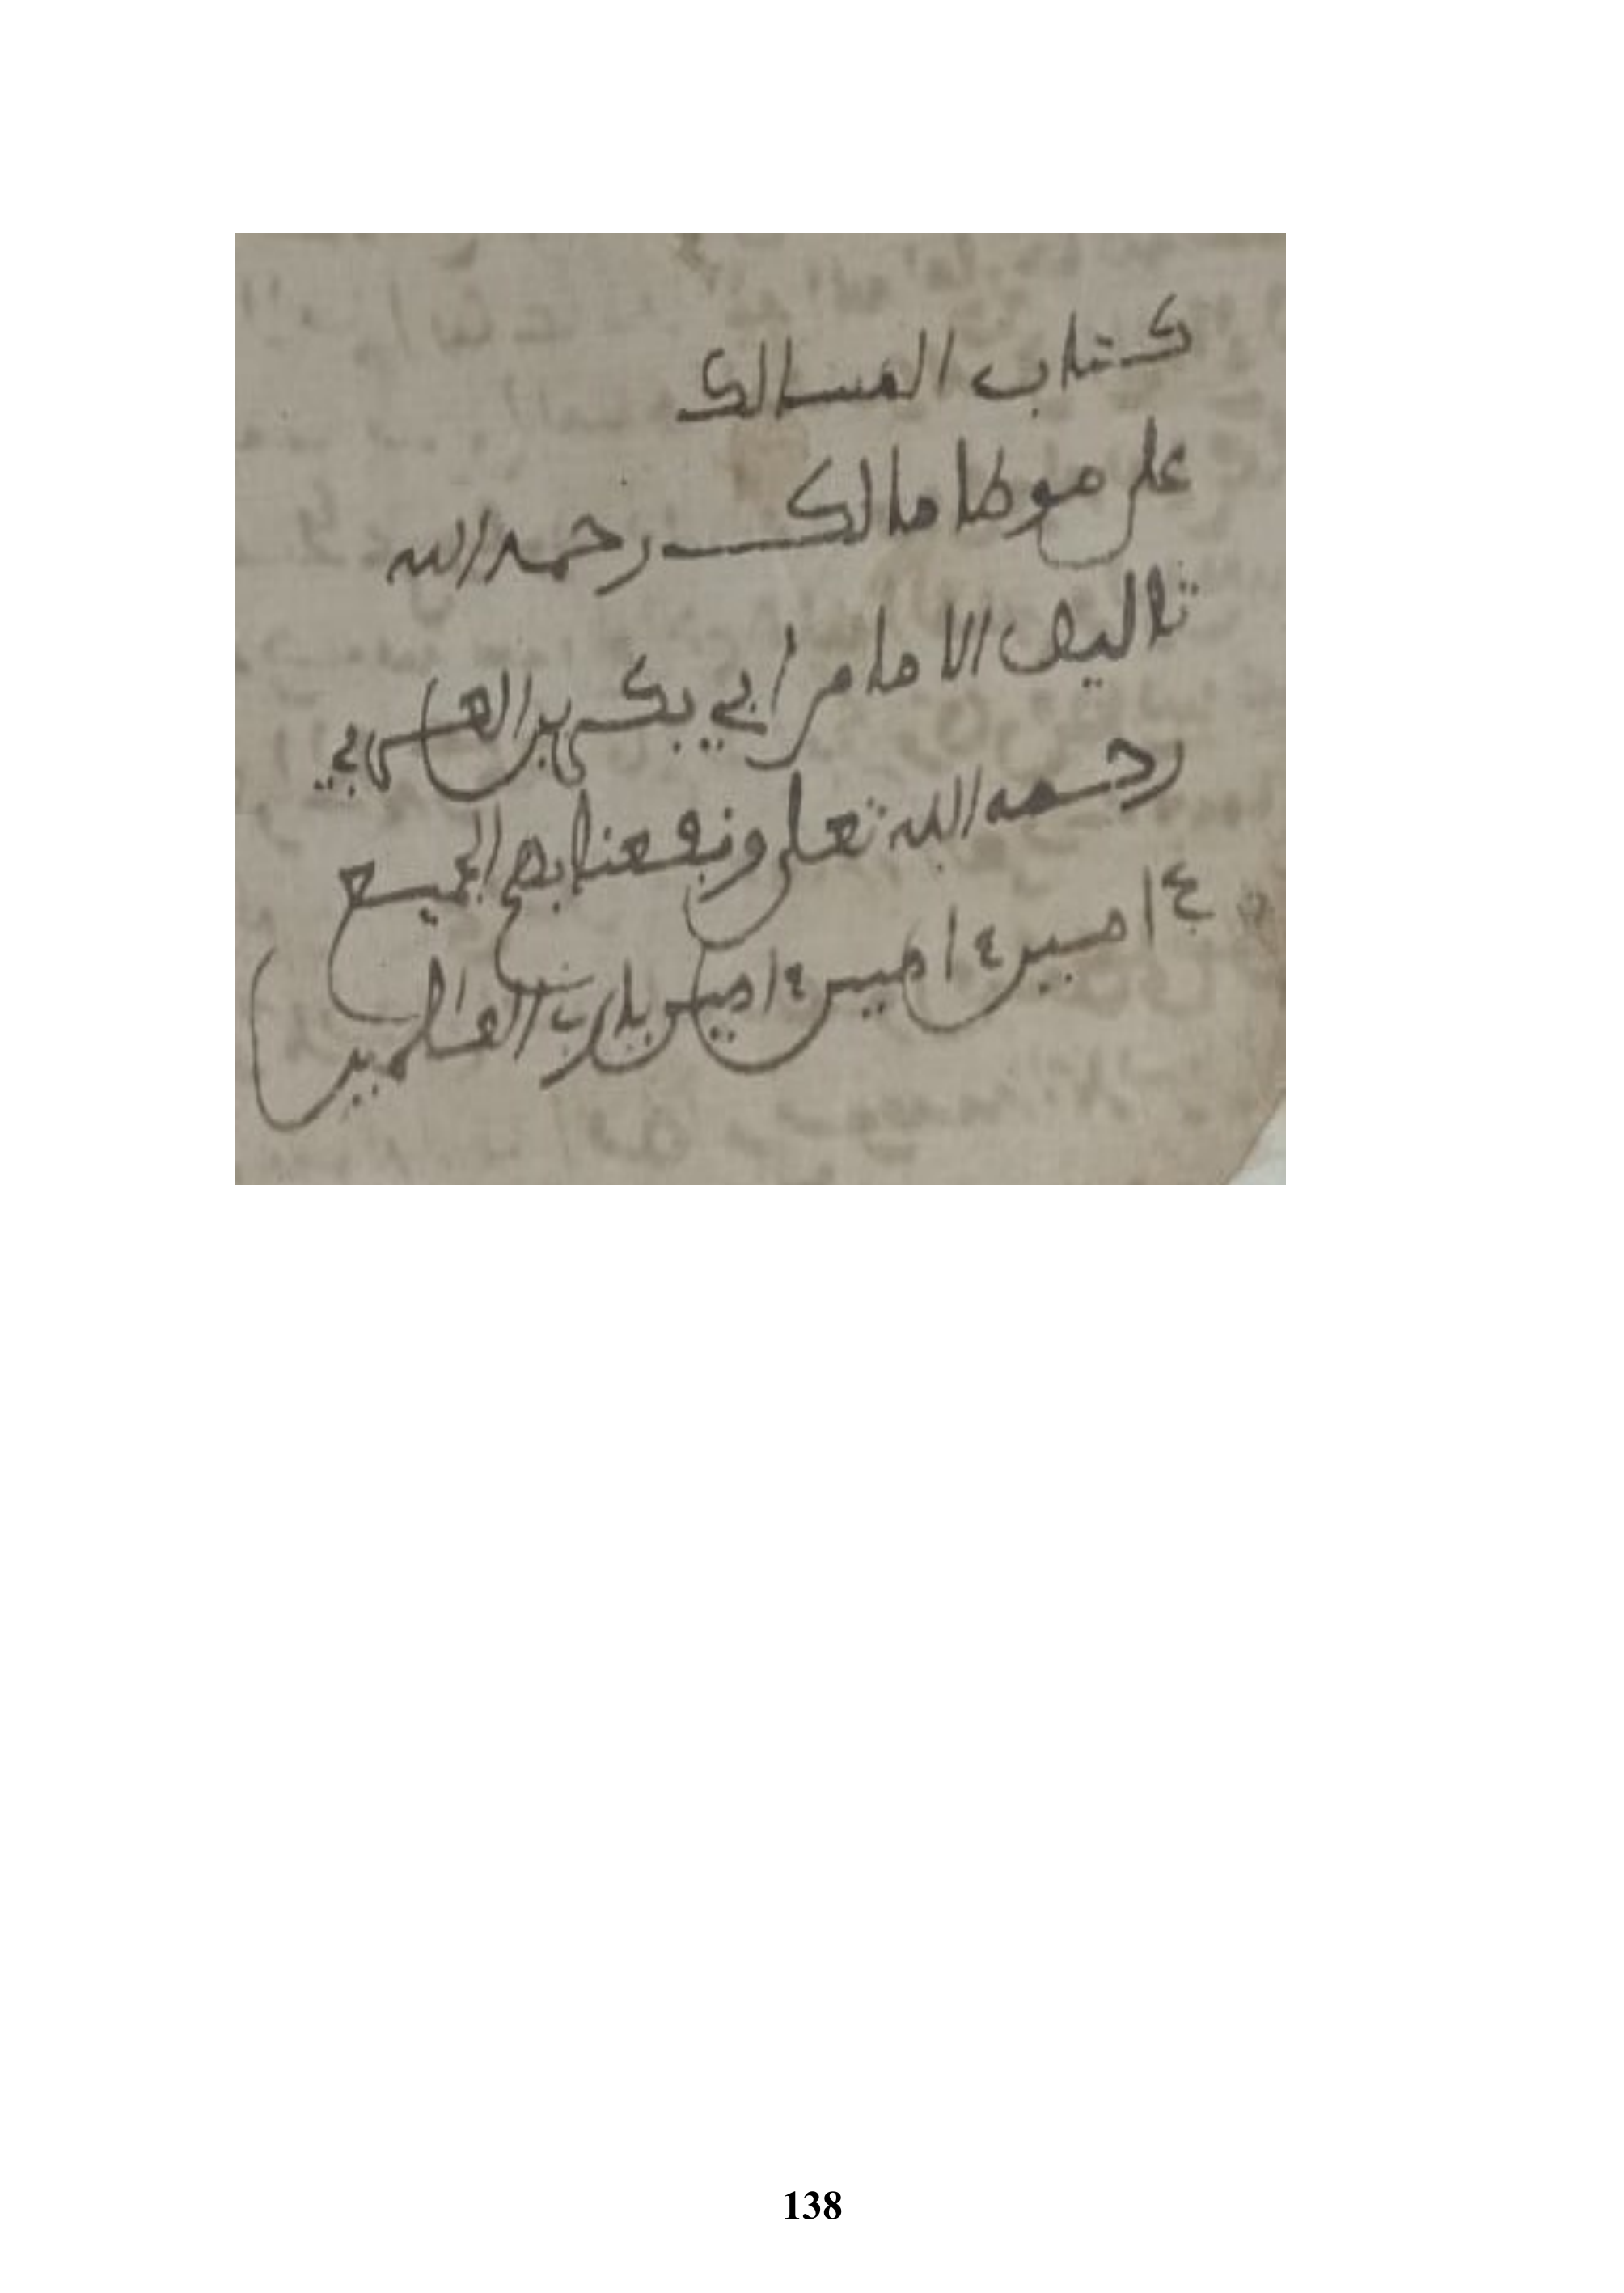 كتاب المسالك
على موطا مالك رحمه الله
تاليف الامام أبي بكر بن العربي
رحمه الله تعلى ونفعنا بهم الجميع
ءامين ءامين ءامين يا رب العالمين
138